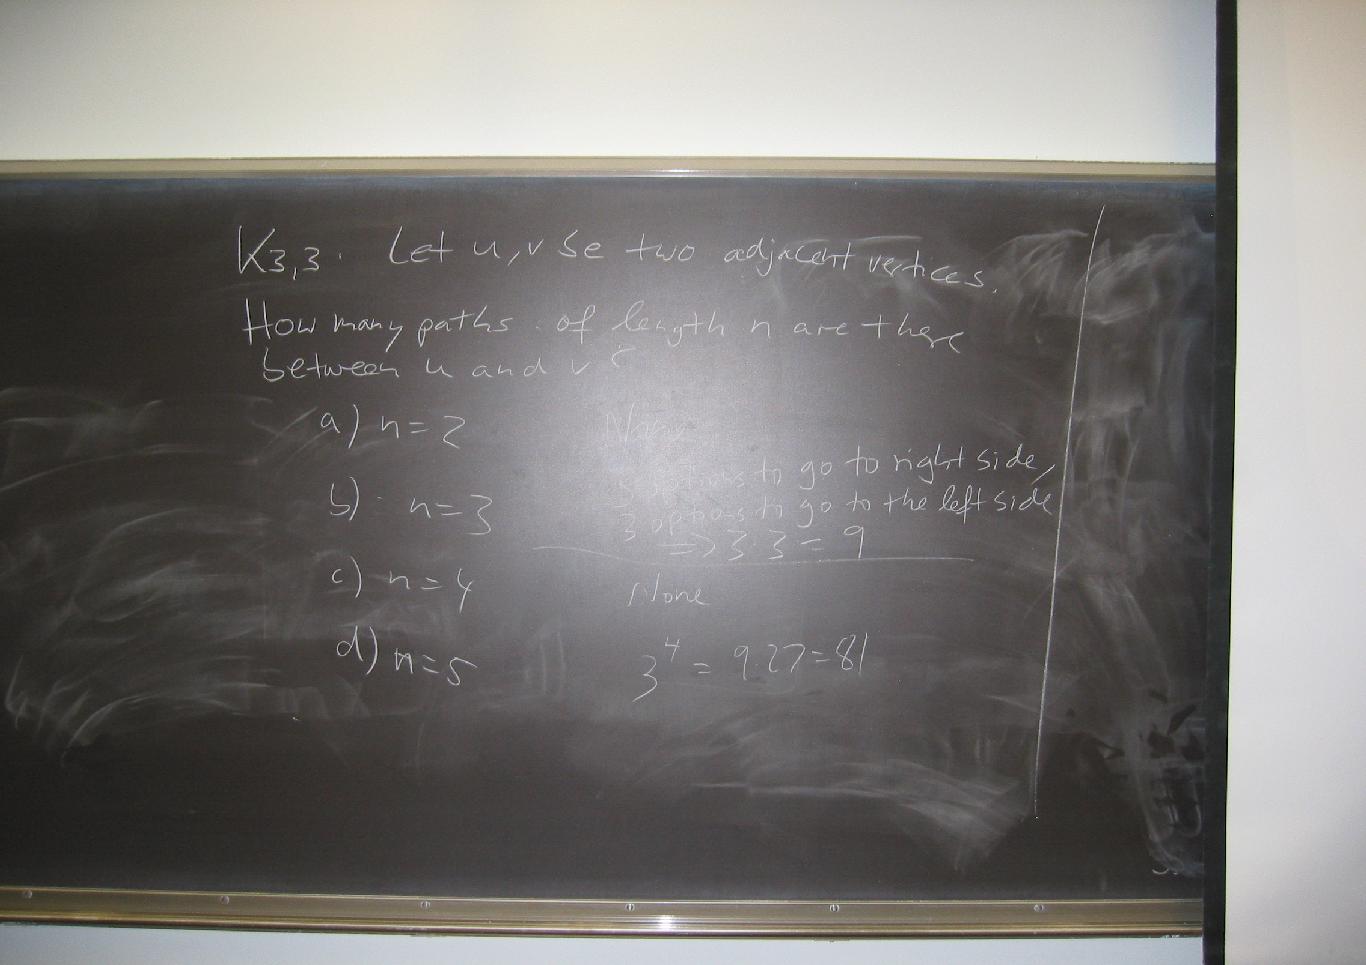 K3,3. Let u,v be two adjacent vertices.
How many paths of length n are there
between u and v?
a) n=2 None
b) n=3 3 options to go to right side,
3 options to go to the left side
=> 3·3=9
c) n=4 None
d) n=5 3^4 = 9.27=81